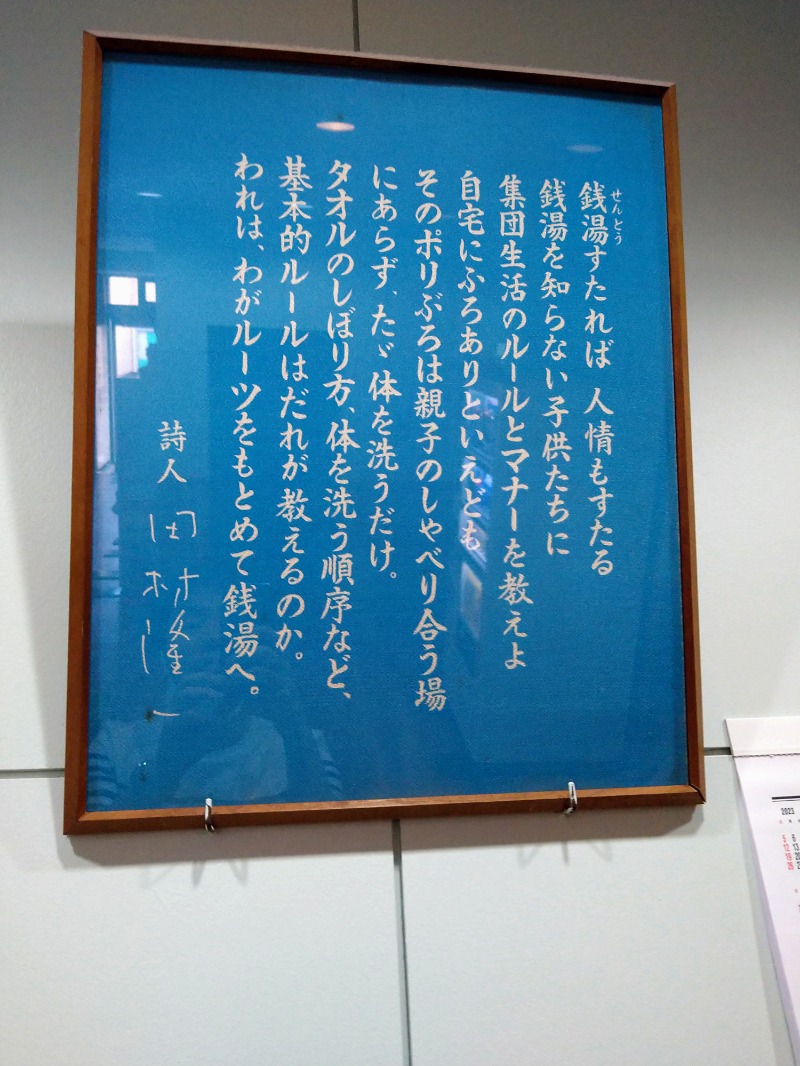 銭湯すたれば 人情もすたる
せんとう
銭湯を知らない子供たちに
集団生活のルールとマナーを教えよ
自宅にふろありといえども
そのポリぶろは親子のしゃべり合う場
にあらず、たゞ体を洗うだけ。
タオルのしぼり方、体を洗う順序など、
基本的ルールはだれが教えるのか。
われは、わがルーツをもとめて銭湯へ。
詩人 田村隆一
2023
5 6
12 13
19 20
26